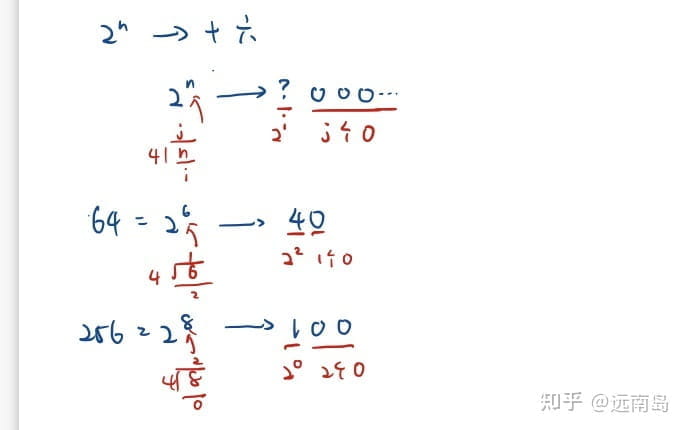 2ⁿ → 十六
2ⁿ → ? 000...
2ⁱ j个0
j
4 n
i
64 = 2⁶ → 40
2² 1个0
1
4 6
2
256 = 2⁸ → 100
2⁰ 2个0
2
4 8
0
知乎 @远南岛